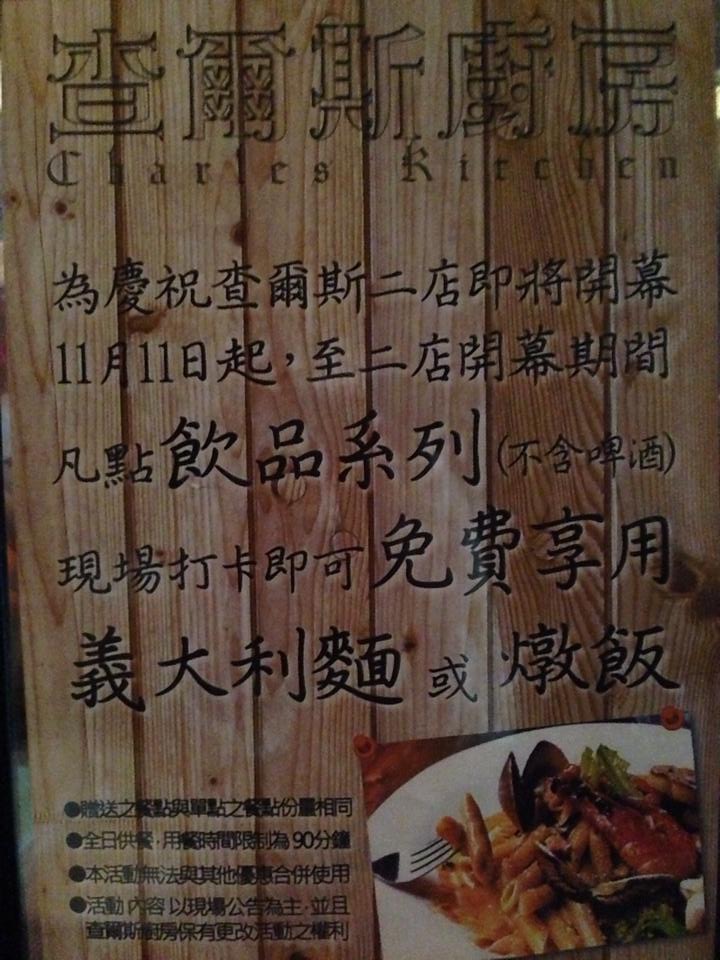 查爾斯廚房
Charles Kitchen
為慶祝查爾斯二店即將開幕
11月11日起，至二店開幕期間
凡點飲品系列(不含啤酒)
現場打卡即可免費享用
義大利麵或燉飯
●贈送之餐點與單點之餐點份量相同
●全日供餐，用餐時間限制為90分鐘
●本活動無法與其他優惠合併使用
●活動內容以現場公告為主，並且
查爾斯廚房保有更改活動之權利